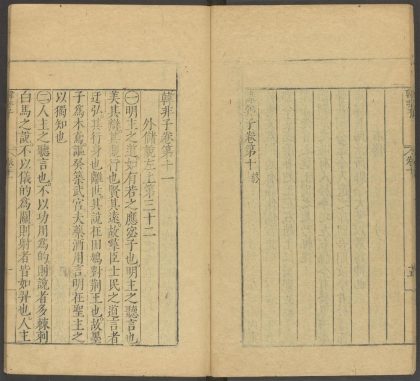 韓非子卷第十 終
韓非子卷第十一
外儲說左上第三十二
㊀明主之道如有若之應宓子也明主之聽言也
美其辯其觀行也賢其遠故羣臣士民之道言者
迂弘其行身也離世其說在田鳩對荊王也故墨
子爲木鳶謳癸築武宮夫藥酒用言明君聖主之
以獨知也
㊁人主之聽言也不以功用爲的則說者多棘刺
白馬之說不以儀的爲關則射者皆如羿也人主